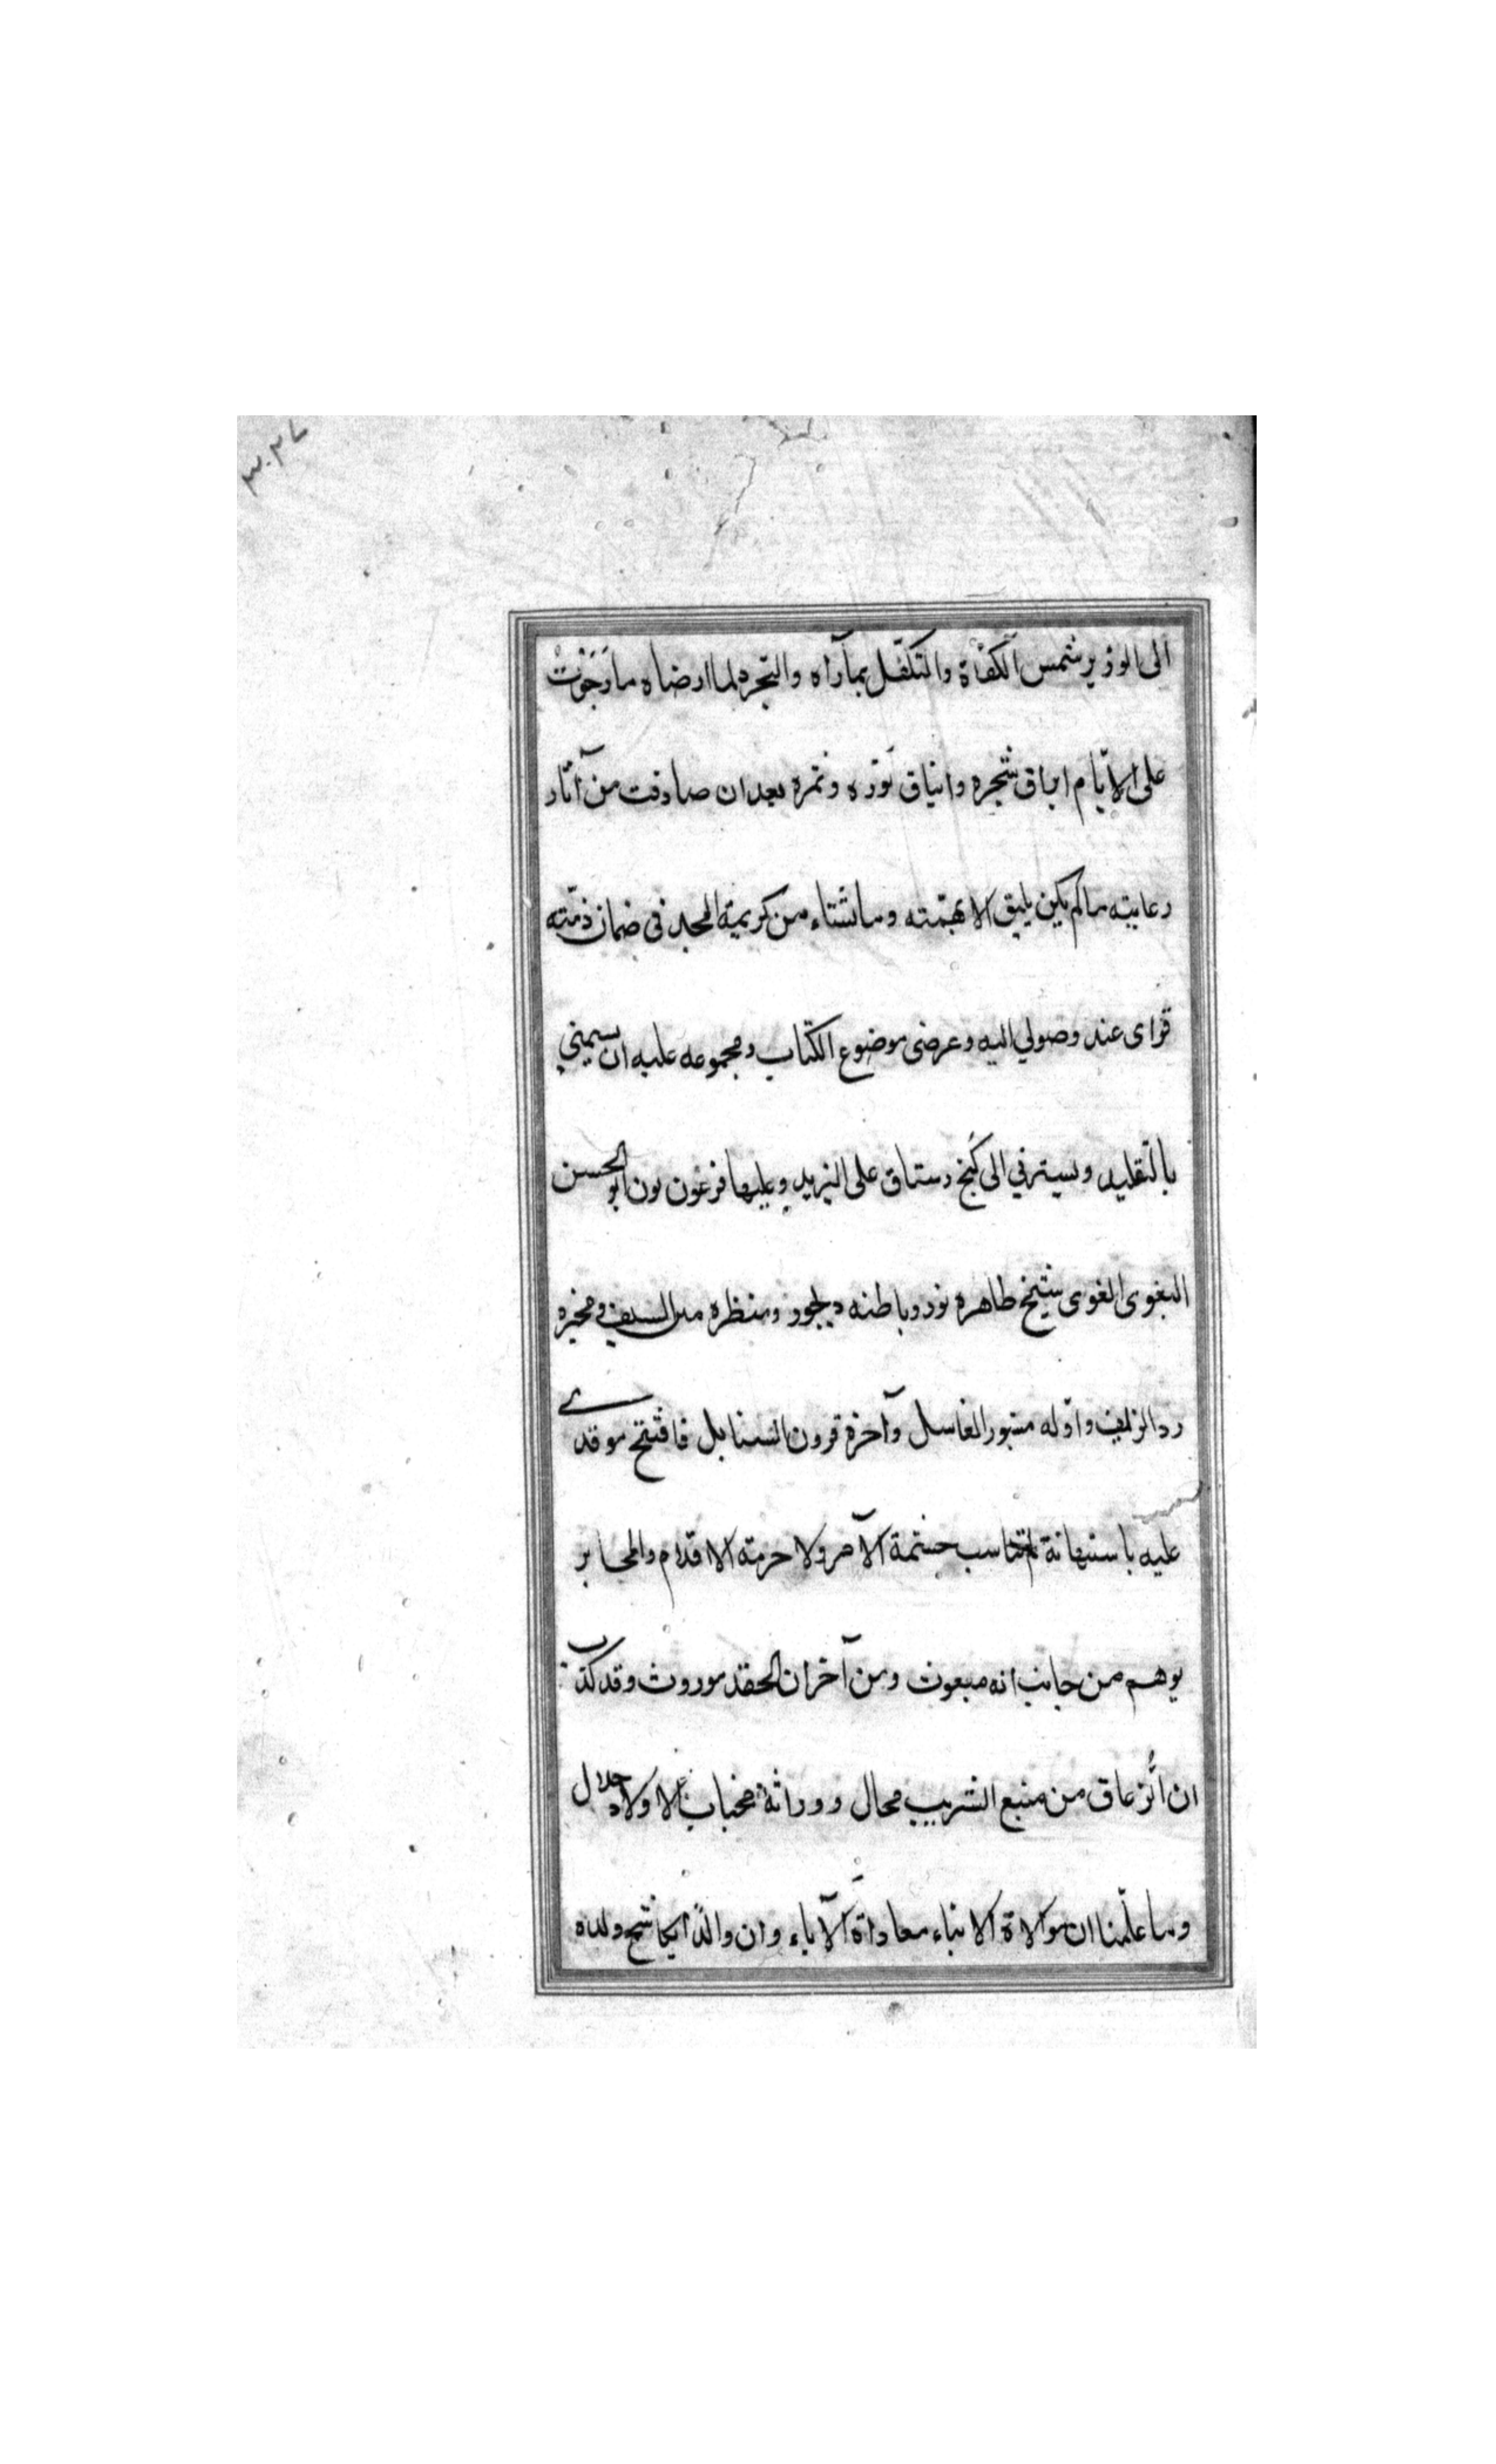 ٣٠٢٧
الى الوزير شمس الكفاة والمتكفل بمآراه والتجرد لما ارضاه ما رجوت
على الايام ايراق شجره وانياق نوره وثمره بعد ان صادفت من آثار
رعايته ما لم يكن يليق الا بهمته وما شتاء من كريمة المجد فى ضمان ذمته
فراى عند وصولي اليه وعرضى موضوع الكتاب ومجموعه عليه ان يسمني
بالتقليد ويسيرني الى كنج رستاق على البريد ويليها فرعون نون ابو الحسن
البغوى الغوى شيخ ظاهره نور وباطنه ديجور ومنظره مل السيف ومخبره
رد الزيف واوله مشور العاسل وآخره قرون السنابل فافتتح موقدى
عليه باستهانة لم تناسب حشمة الآمر ولا حرمته الاقدام والمحابر
يوهم من جانب انه مبعوث ومن آخر ان الحقد موروث وقد كذب
ان ائزعاق من منبع الشريب محال ووراثة مخبات لاولاد حلال
وما علمنا ان موالاة الابناء معاداة الآباء وان والدا يكاشح ولده